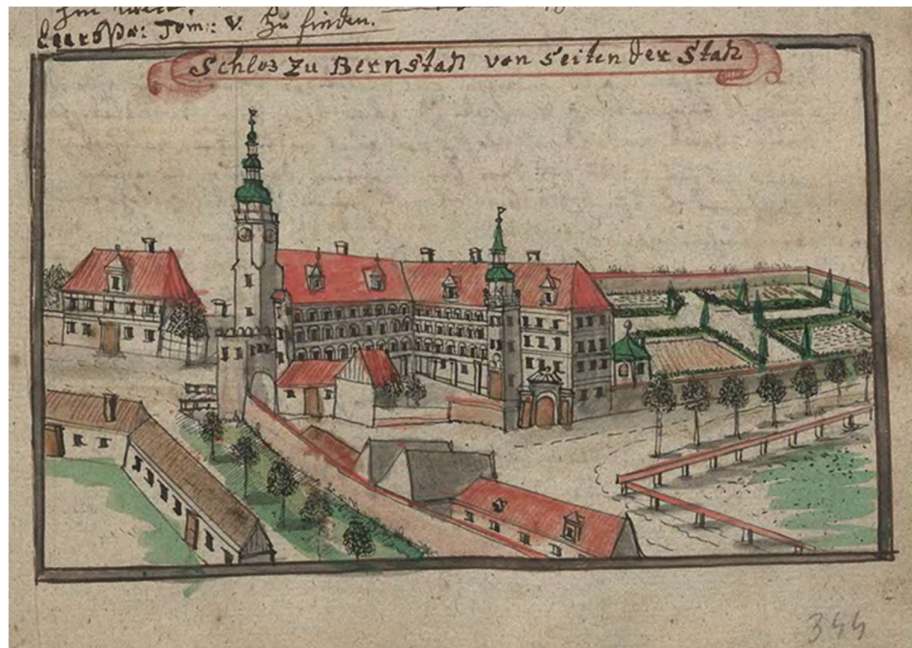 Europæ: Tom: V. Zu finden.
Schlos Zu Bernstatt von seiten der Statt
344